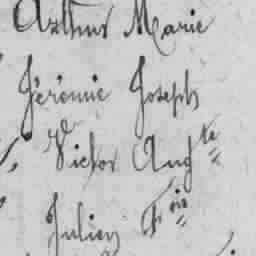 Arthur Marie
Jérémie Joseph
Victor Aug te
Julien F ois